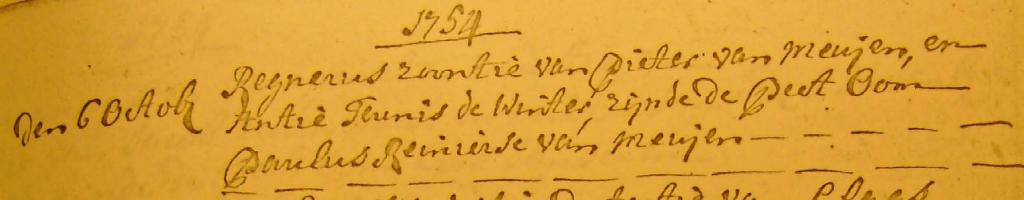 1754
Den 6 Octob Regnerus zoontie van Pieter van Meujen, en
Antie Teunis de Winter, zijnde de Peet Oom
Paulus Reinierse van Meujen